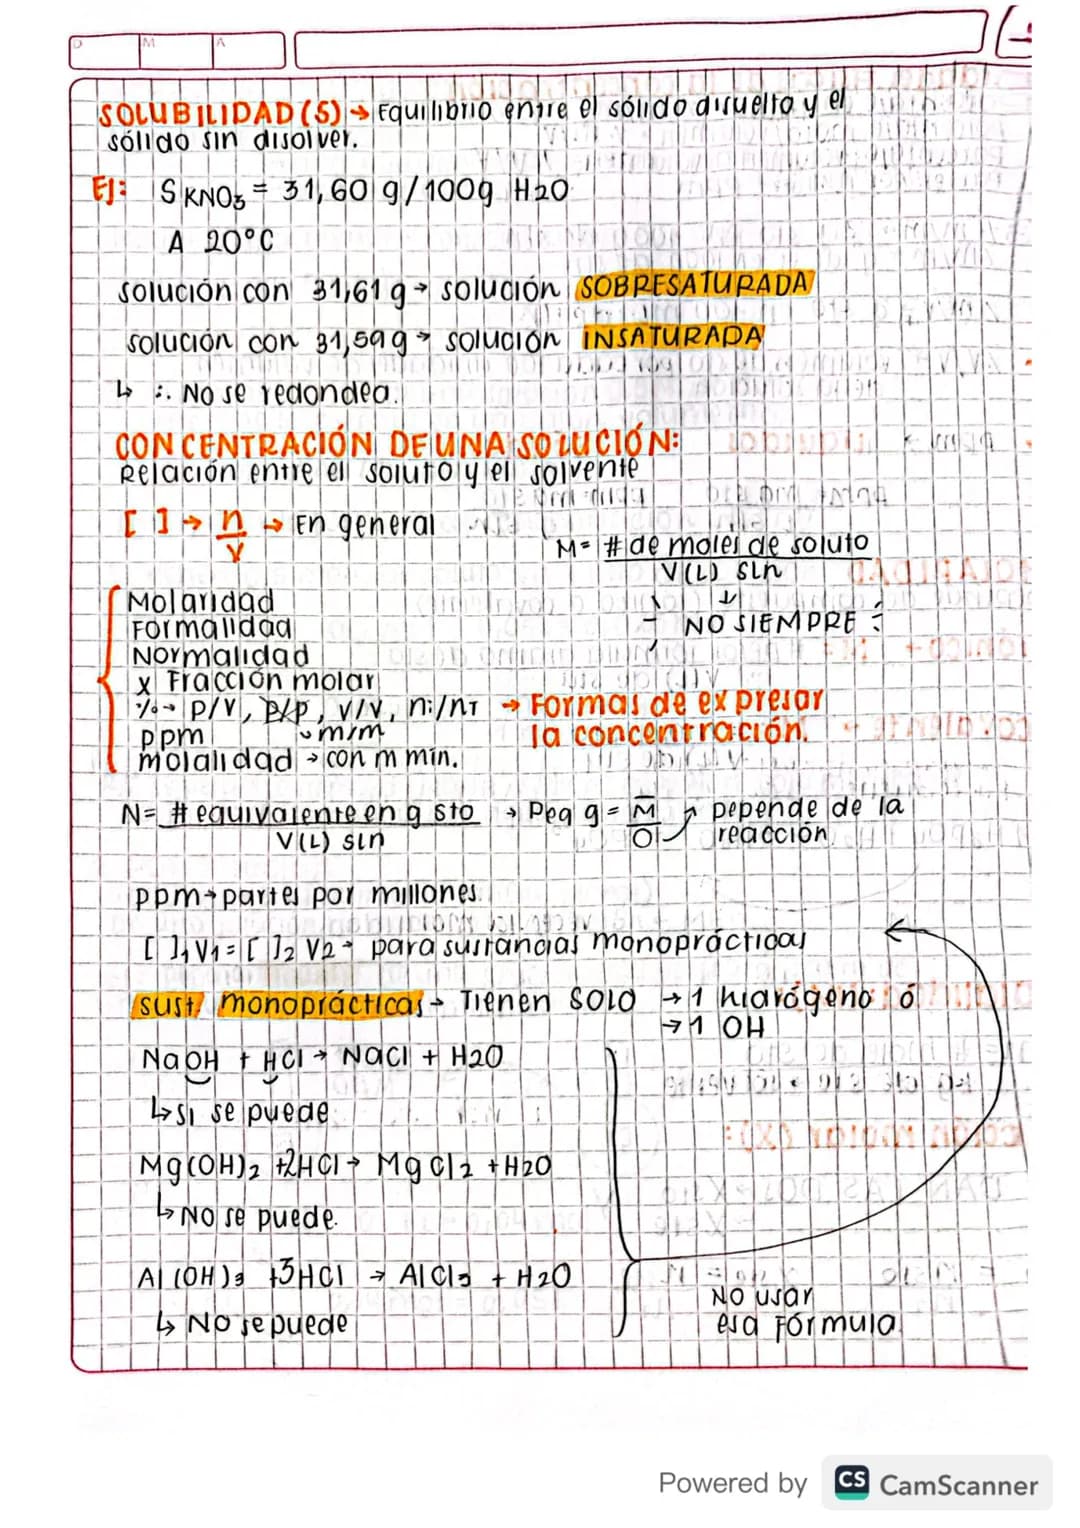 D M A
SOLUBILIDAD (S) → Equilibrio entre el sólido disuelto y el
sólido sin disolver.
EJ: S KNO3 = 31,60 g/100g H2O
A 20°C
solución con 31,61 g → solución SOBRESATURADA
solución con 31,59g → solución INSATURADA
↳ ∴ No se redondea.
CONCENTRACIÓN DE UNA SOLUCIÓN:
Relación entre el soluto y el solvente
[ ] → n/V → En general
M = # de moles de soluto
V(L) sln
↓
NO SIEMPRE
Molaridad
Formalidad
Normalidad
X Fracción molar
% → P/V, P/P, V/V, ni/nT → Formas de expresar
ppm ↘ m/m la concentración.
molalidad → con m min.
N = # equivalente en g sto → Peq g = M̄ ↗ Depende de la
V(L) sln O reacción
ppm → partes por millones.
[ ]1 V1 = [ ]2 V2 → para sustancias monoprácticas
sust. monoprácticas → Tienen SOLO → 1 hidrógeno ó
→ 1 OH
NaOH + HCl → NaCl + H2O
↳ si se puede
Mg(OH)2 + 2HCl → MgCl2 + H2O
↳ No se puede.
Al(OH)3 + 3HCl → AlCl3 + H2O
↳ No se puede
No usar
esa Fórmula
Powered by CS CamScanner